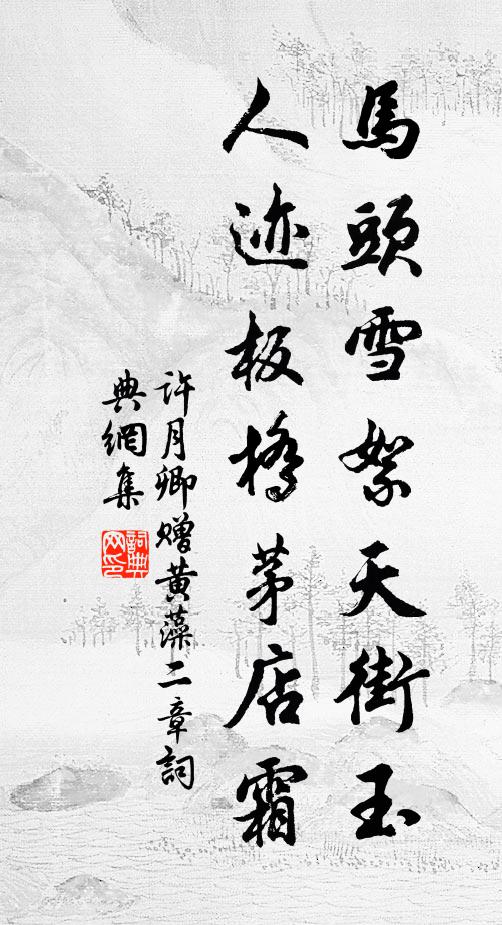 馬頭雪絮天街玉
人迹板橋茅店霜
許月卿贈黄藻二章詞
典網集
詞典
网印